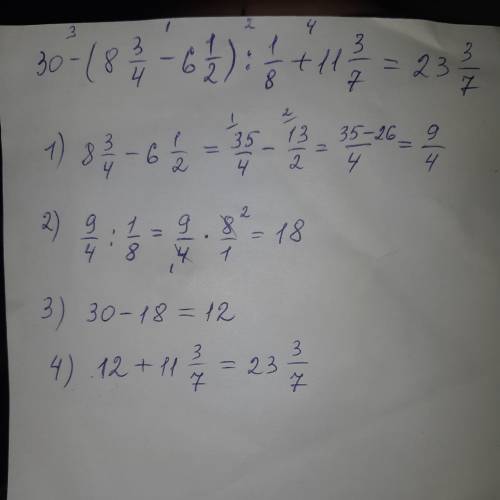 3 1 2 4
30 - (8 3/4 - 6 1/2) : 1/8 + 11 3/7 = 23 3/7
1) 8 3/4 - 6 1/2 = 1/ 35/4 - 2/ 13/2 = 35-26/4 = 9/4
2) 9/4 : 1/8 = 9/4 1 · 8/1 2 = 18
3) 30 - 18 = 12
4) 12 + 11 3/7 = 23 3/7